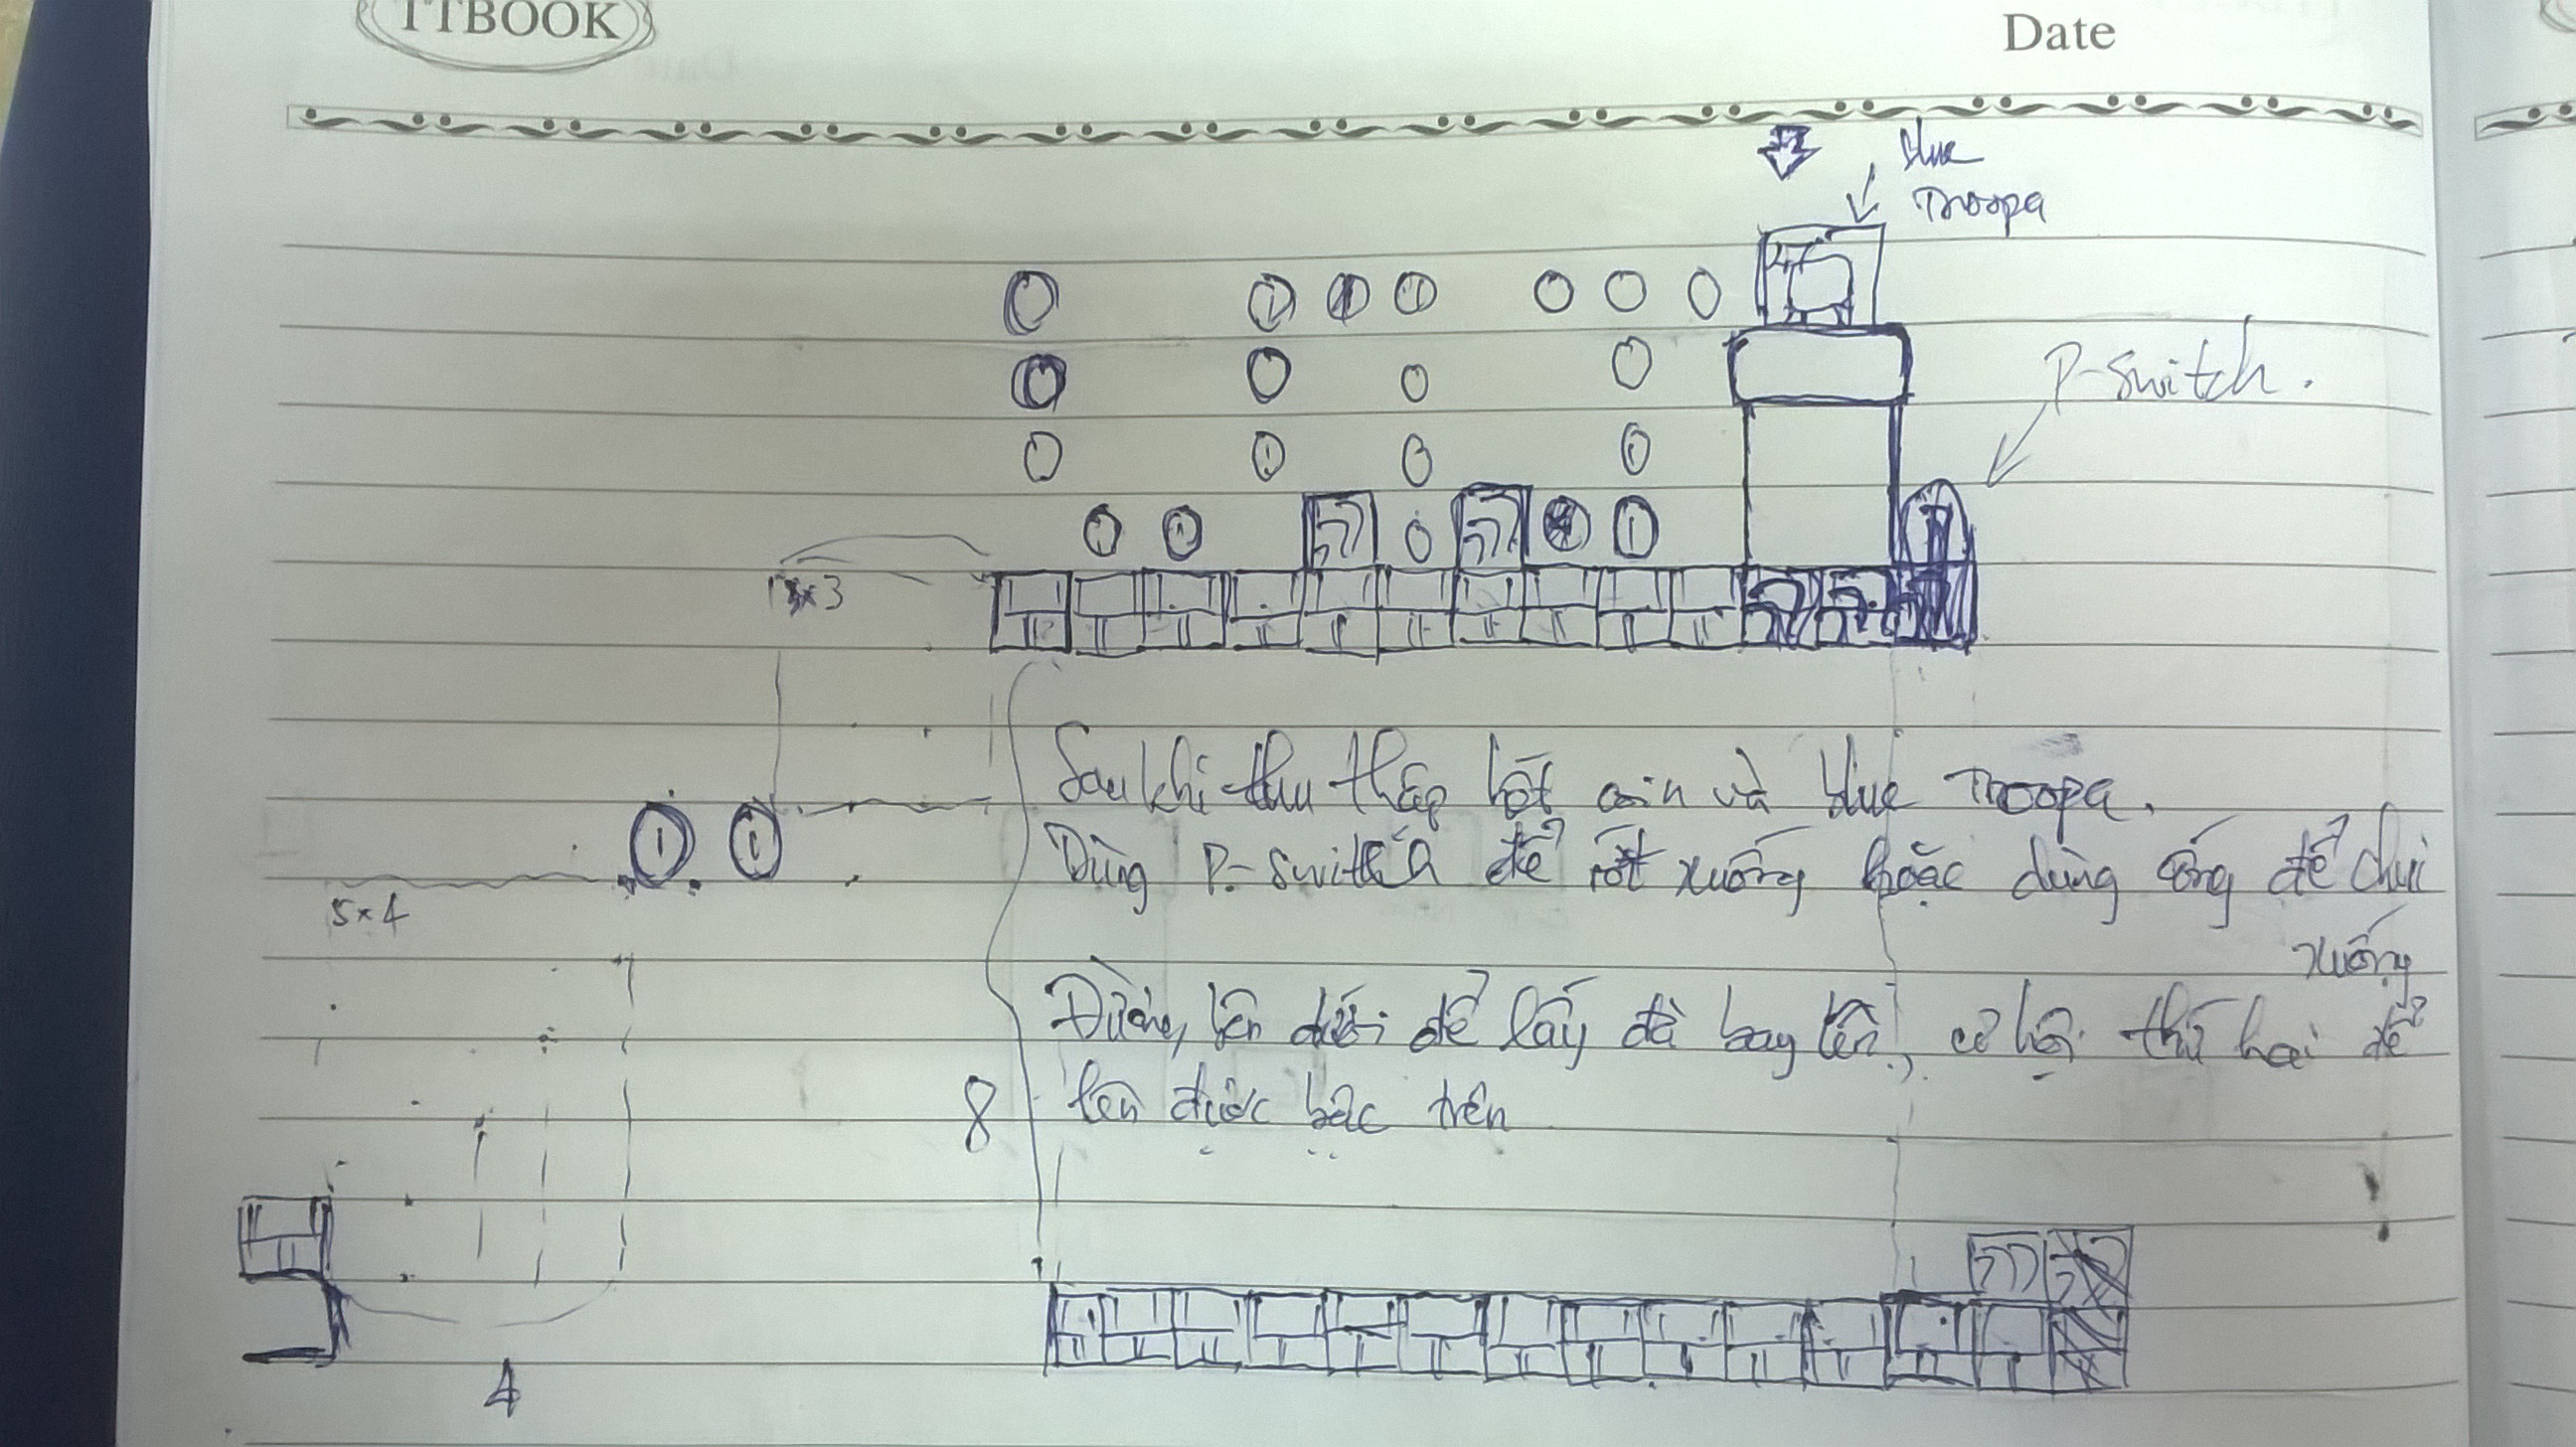 TTBOOK
Date
blue
Troopa
P-switch.
5x4
Sau khi thu thập hết coin và blue Troopa.
Dùng P-switch để rớt xuống hoặc dùng ống để chui
xuống
Đường bên dưới để lấy đà bay lên, cơ hội thứ hai để
8
lên được bậc trên
4